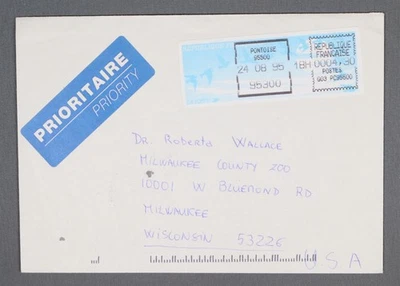 PRIORITAIRE
PRIORITY
PONTOISE
95500
24 08 95
95300
REPUBLIQUE
FRANCAISE
18H 0004,30
POSTES
003 PC95500
Dr. Roberta Wallace
Milwaukee County zoo
10001 W Bluemond Rd
Milwaukee
Wisconsin 53226
USA